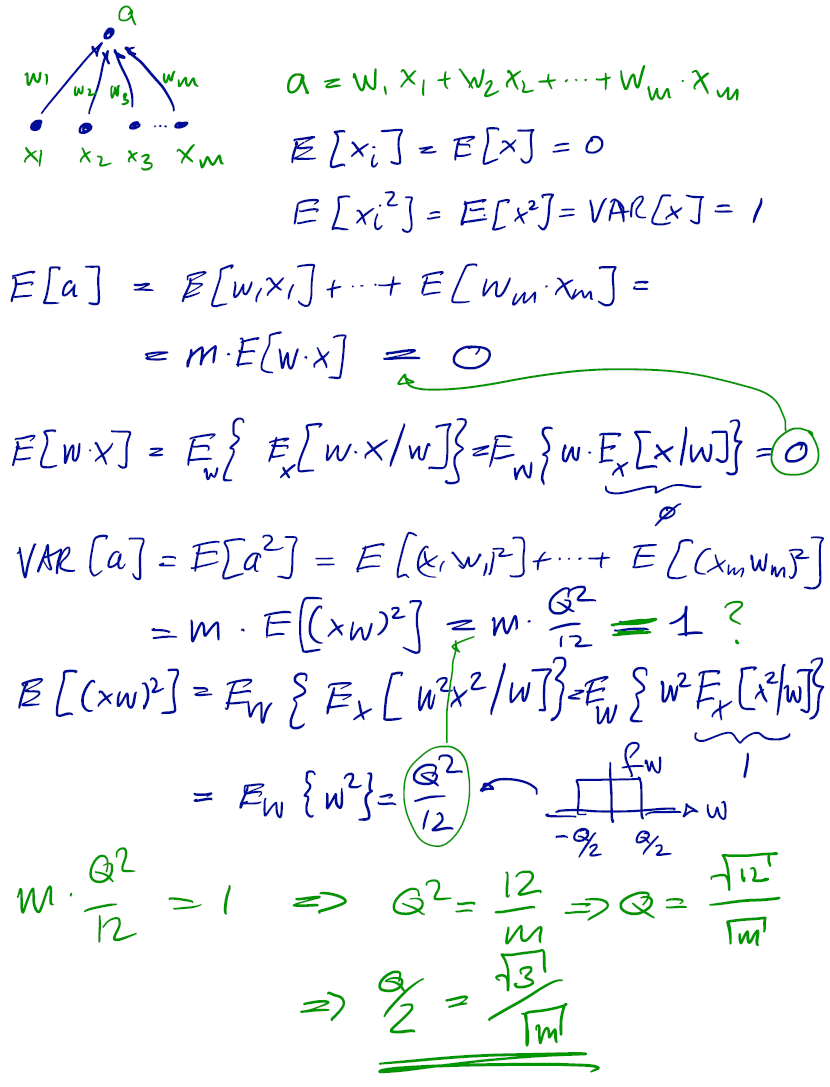 a
w1 w2 w3 wm
x1 x2 x3 ... xm
a = w1 x1 + w2 x2 + ... + wm · xm
E[xi] = E[x] = 0
E[xi²] = E[x²] = VAR[x] = 1
E[a] = E[w1x1] + ... + E[wm · xm] =
= m · E[w·x] = 0
E[w·x] = Ew{ Ex[w·x/w]} = Ew{w · Ex[x/w]} = 0
ø
VAR[a] = E[a²] = E[(x1w1)²] + ... + E[(xmwm)²]
= m · E[(xw)²] = m · Q²/12 = 1 ?
E[(xw)²] = Ew{ Ex[w²x²/w]} = Ew{w² Ex[x²/w]}
1
= Ew{w²} = Q²/12
fw
w
-Q/2 Q/2
m · Q²/12 = 1 => Q² = 12/m => Q = √12/√m
=> Q/2 = √3/√m